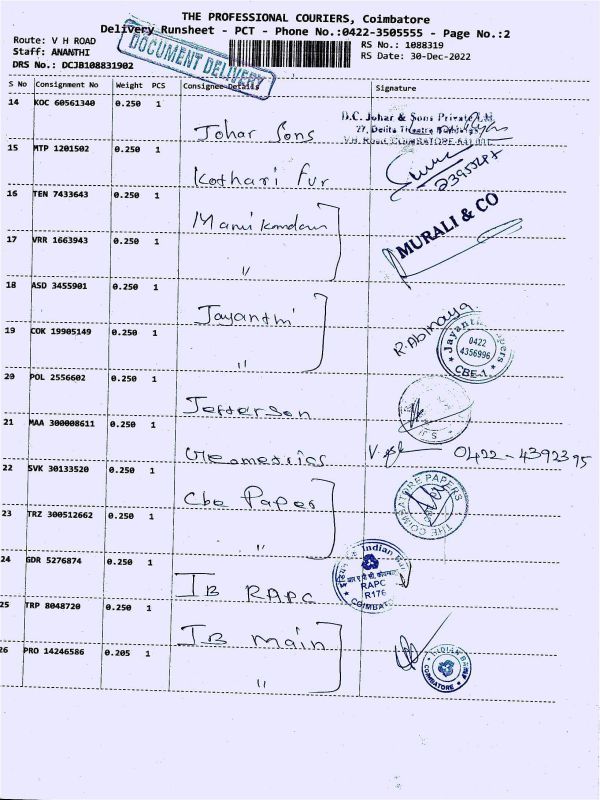 THE PROFESSIONAL COURIERS, Coimbatore
Delivery Runsheet - PCT - Phone No.:0422-3505555 - Page No.:2
Route: V H ROAD
RS No.: 1088319
Staff: ANANTHI
RS Date: 30-Dec-2022
DRS No.: DCJB108831902
DOCUMENT DELIVERY
S No Consignment No Weight PCS Consignee Details Signature
14 KOC 60561340 0.250 1
Johar Sons
D.C. Johar & Sons Private Ltd.
15 MTP 1201502 0.250 1
Kothari Fur
16 TEN 7433643 0.250 1
Manikandan
MURALI & CO
17 VRR 1663943 0.250 1
"
18 ASD 3455901 0.250 1
Jayanthi
R. Abinaya
0422
4356996
CBE-1
19 COK 19905149 0.250 1
"
20 POL 2556602 0.250 1
Jefferson
21 MAA 300008611 0.250 1
Geometrics
0422-4392395
22 SVK 30133520 0.250 1
Cbe Paper
THE COIMBATORE PAPERS
23 TRZ 300512662 0.250 1
"
24 GDR 5276874 0.250 1
IB RAPC
Indian
RAPC
R176
25 TRP 8048720 0.250 1
IB main
26 PRO 14246586 0.205 1
"
INDIAN BANK
COIMBATORE